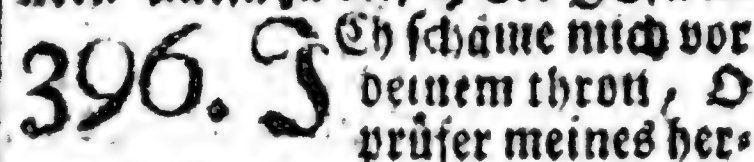 396. JCh schäme mich vor
deinem thron, O
prüfer meines her=